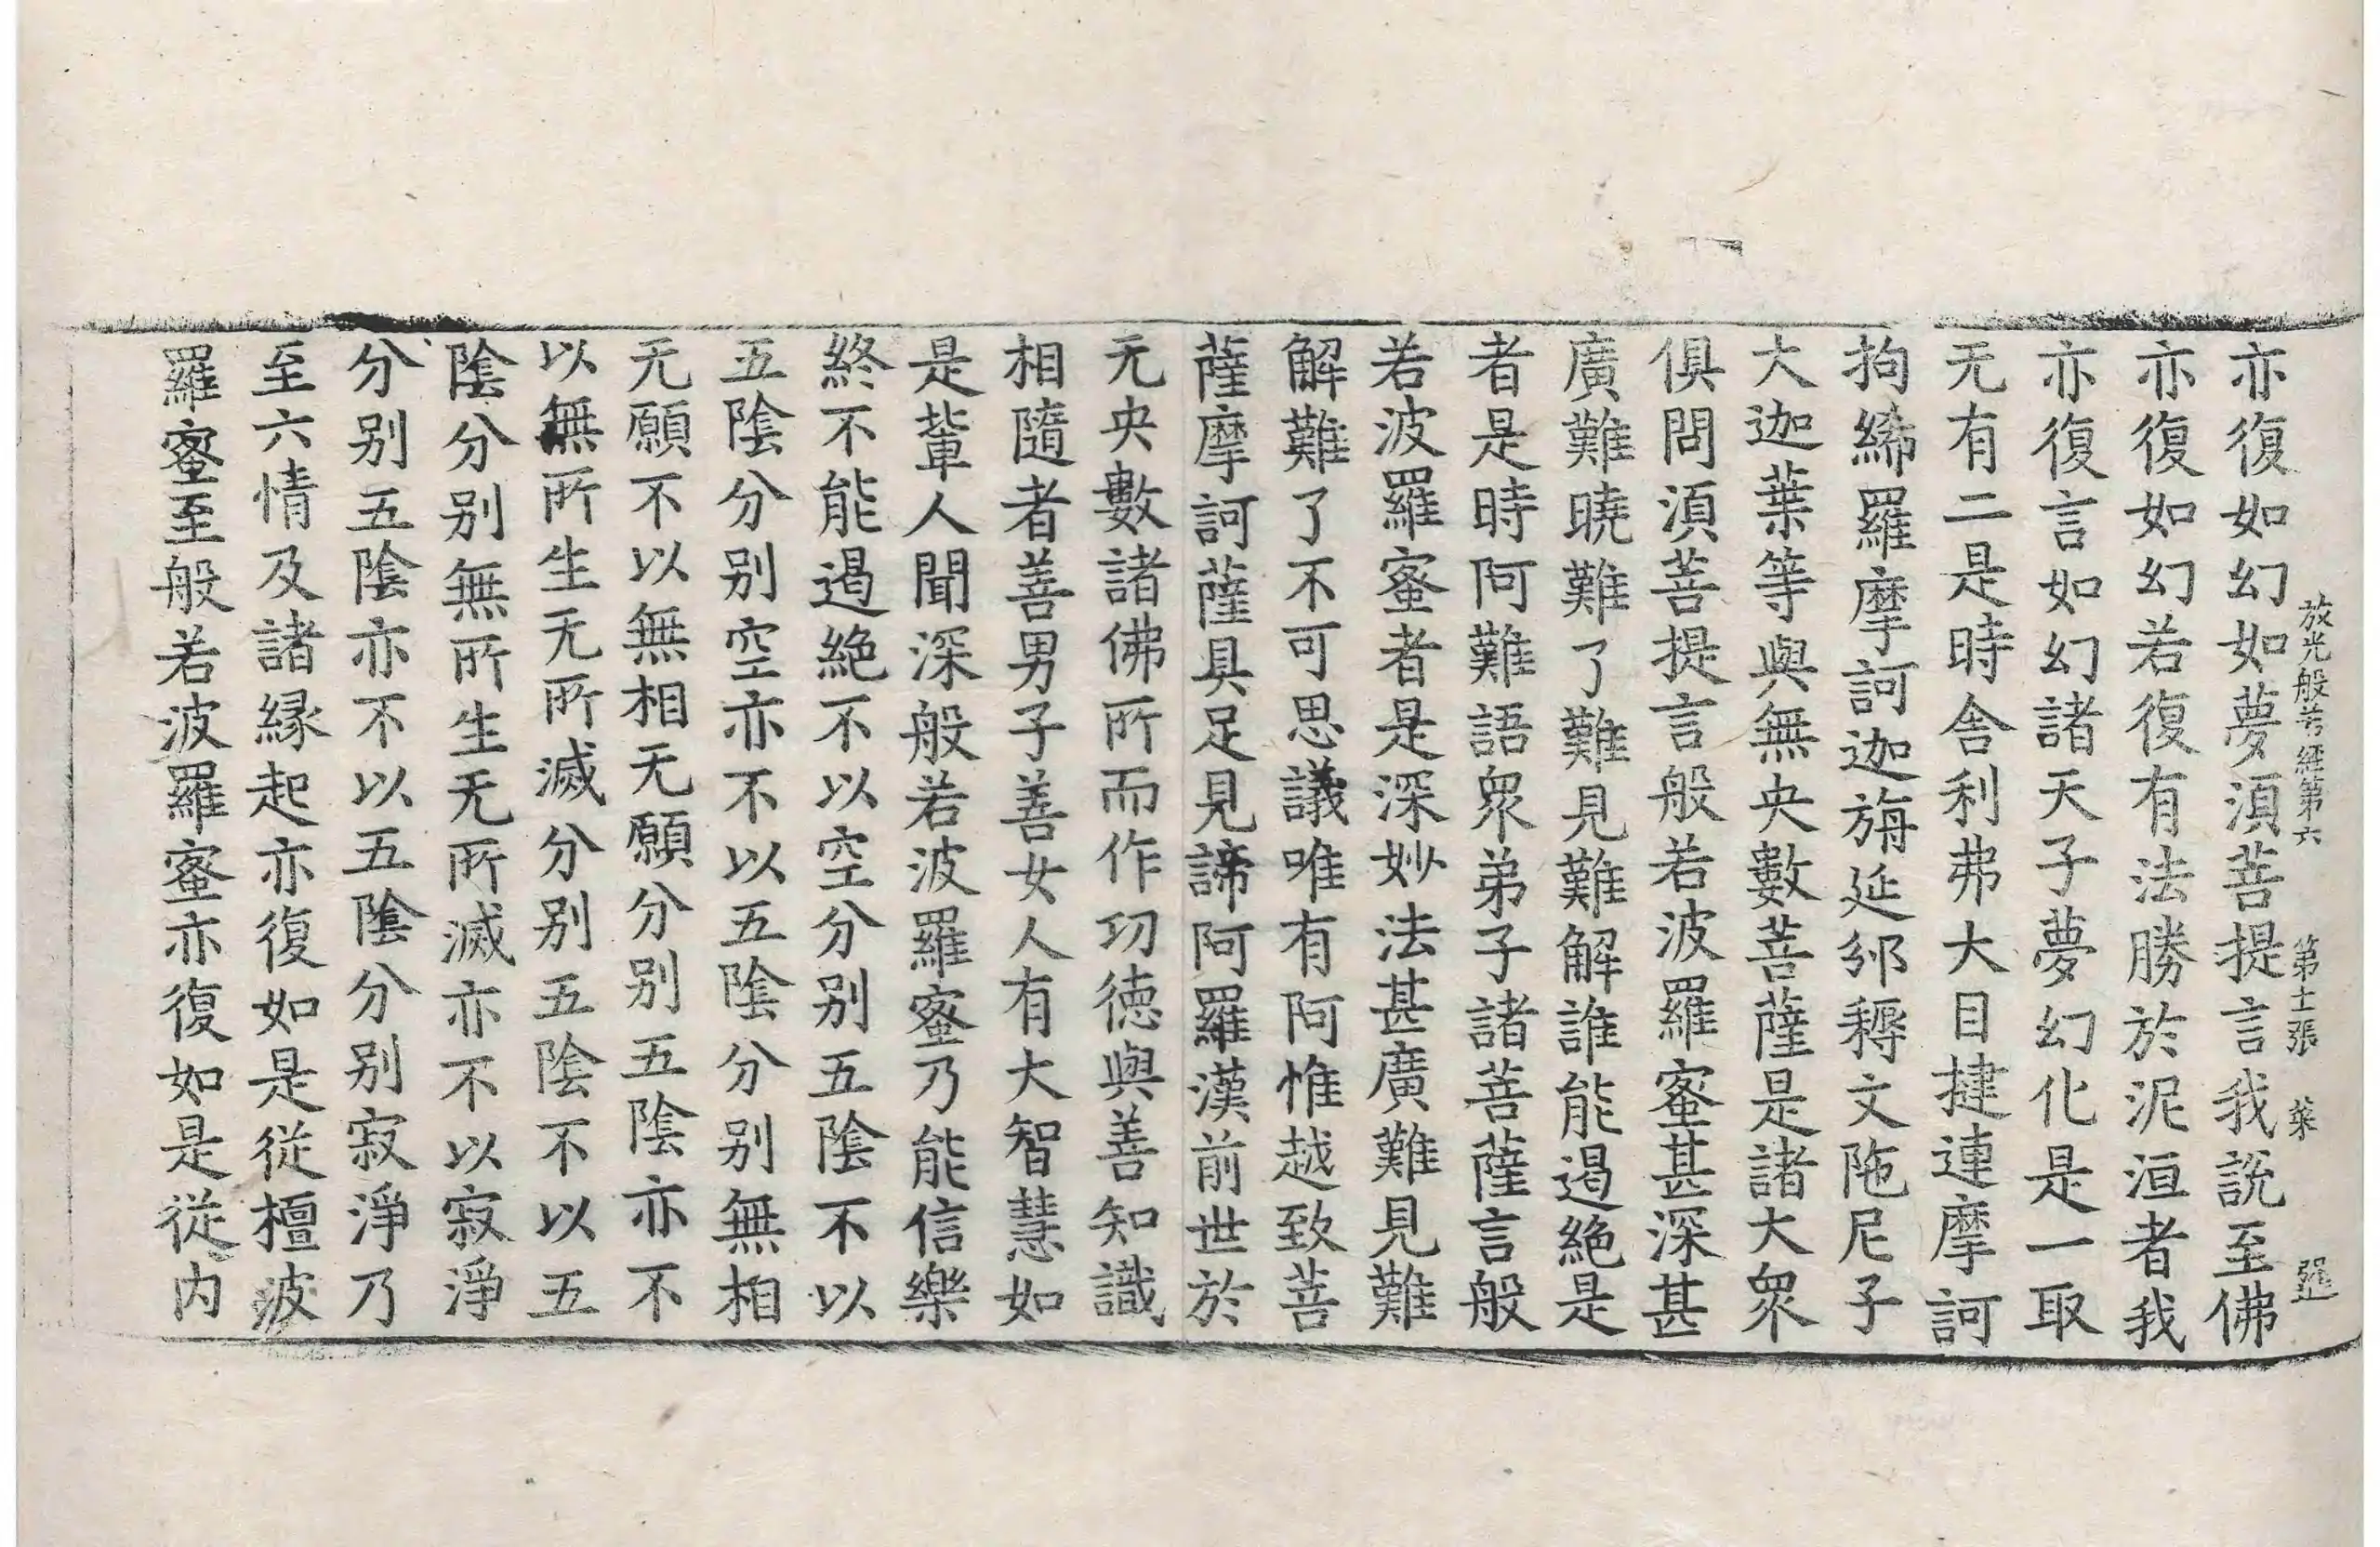 放光般若經第六　第十二張　菜
亦復如幻如夢湏菩提言我說至佛
亦復如幻若復有法勝於泥洹者我
亦復言如幻諸天子夢幻化是一取
无有二是時舎利弗大目揵連摩訶
拘絺羅摩訶迦旃延邠耨文陁尼子
大迦葉等與無央數菩薩是諸大衆
俱問湏菩提言般若波羅蜜甚深甚
廣難曉難了難見難解誰能遏絶是
者是時阿難語衆弟子諸菩薩言般
若波羅蜜者是深妙法甚廣難見難
解難了不可思議唯有阿惟越致菩
薩摩訶薩具足見諦阿羅漢前世於
无央數諸佛所而作功德與善知識
相隨者善男子善女人有大智慧如
是輩人聞深般若波羅蜜乃能信樂
終不能遏絶不以空分别五隂不以
五隂分别空亦不以五隂分别無相
无願不以無相无願分别五隂亦不
以無所生无所滅分别五隂不以五
隂分别無所生无所滅亦不以寂淨
分别五隂亦不以五隂分别寂淨乃
至六情及諸緣起亦復如是從檀波
羅蜜至般若波羅蜜亦復如是從内